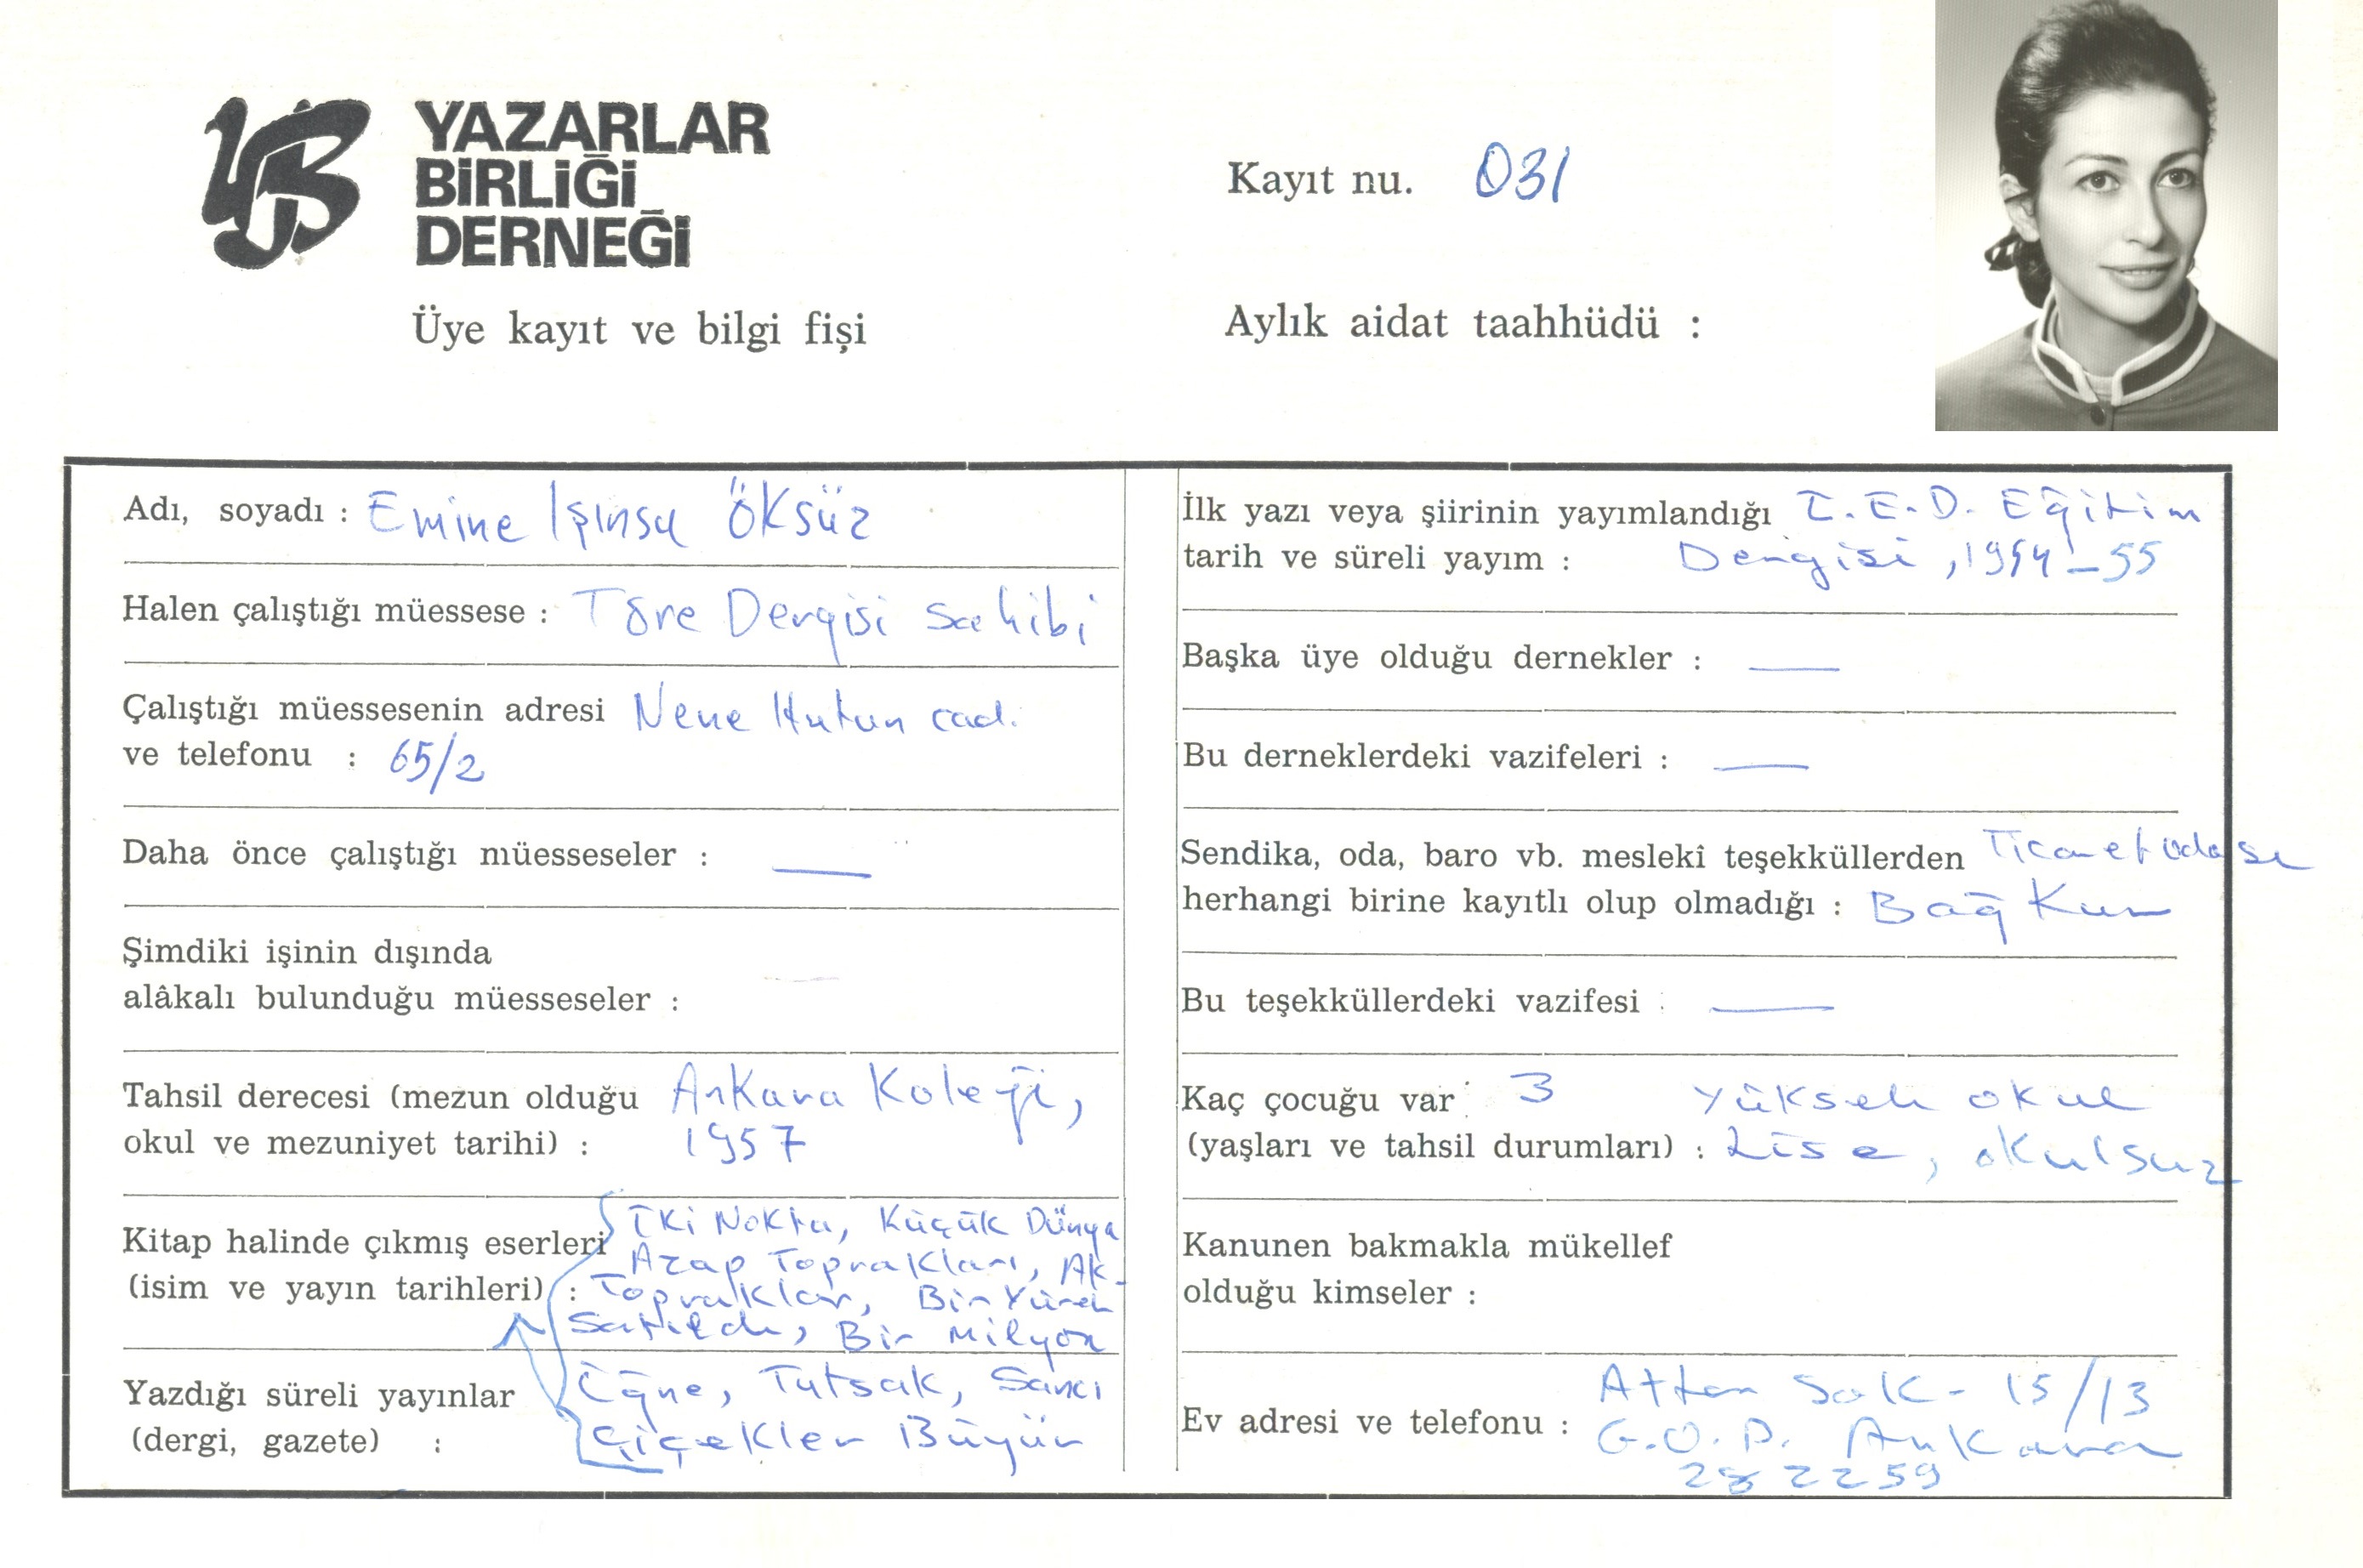 YAZARLAR
BİRLİĞİ
DERNEĞİ
Üye kayıt ve bilgi fişi
Kayıt nu. 031
Aylık aidat taahhüdü :
Adı, soyadı : Emine Işınsu ÖKSÜZ
Halen çalıştığı müessese : Töre Dergisi sahibi
Çalıştığı müessesenin adresi Nene Hatun cad.
ve telefonu : 65/2
Daha önce çalıştığı müesseseler : —
Şimdiki işinin dışında
alâkalı bulunduğu müesseseler :
Tahsil derecesi (mezun olduğu Ankara Koleji,
okul ve mezuniyet tarihi) : 1957
Kitap halinde çıkmış eserleri İki Nokta, Küçük Dünya
Azap Toprakları, Ak
(isim ve yayın tarihleri) : Topraklar, Bir Yürek
Satıldı, Bir Milyon
İğne, Tutsak, Sancı
Yazdığı süreli yayınlar
(dergi, gazete) : Çiçekler Büyür
İlk yazı veya şiirinin yayımlandığı T.E.D. Eğitim
tarih ve süreli yayım : Dergisi, 1954-55
Başka üye olduğu dernekler : —
Bu derneklerdeki vazifeleri : —
Sendika, oda, baro vb. meslekî teşekküllerden Ticaret odası
herhangi birine kayıtlı olup olmadığı : Bağ Kur
Bu teşekküllerdeki vazifesi : —
Kaç çocuğu var : 3 Yüksek okul
(yaşları ve tahsil durumları) : Lise, okulsuz
Kanunen bakmakla mükellef
olduğu kimseler :
Attar Sok - 15/13
Ev adresi ve telefonu : G.O.P. Ankara
28 22 59